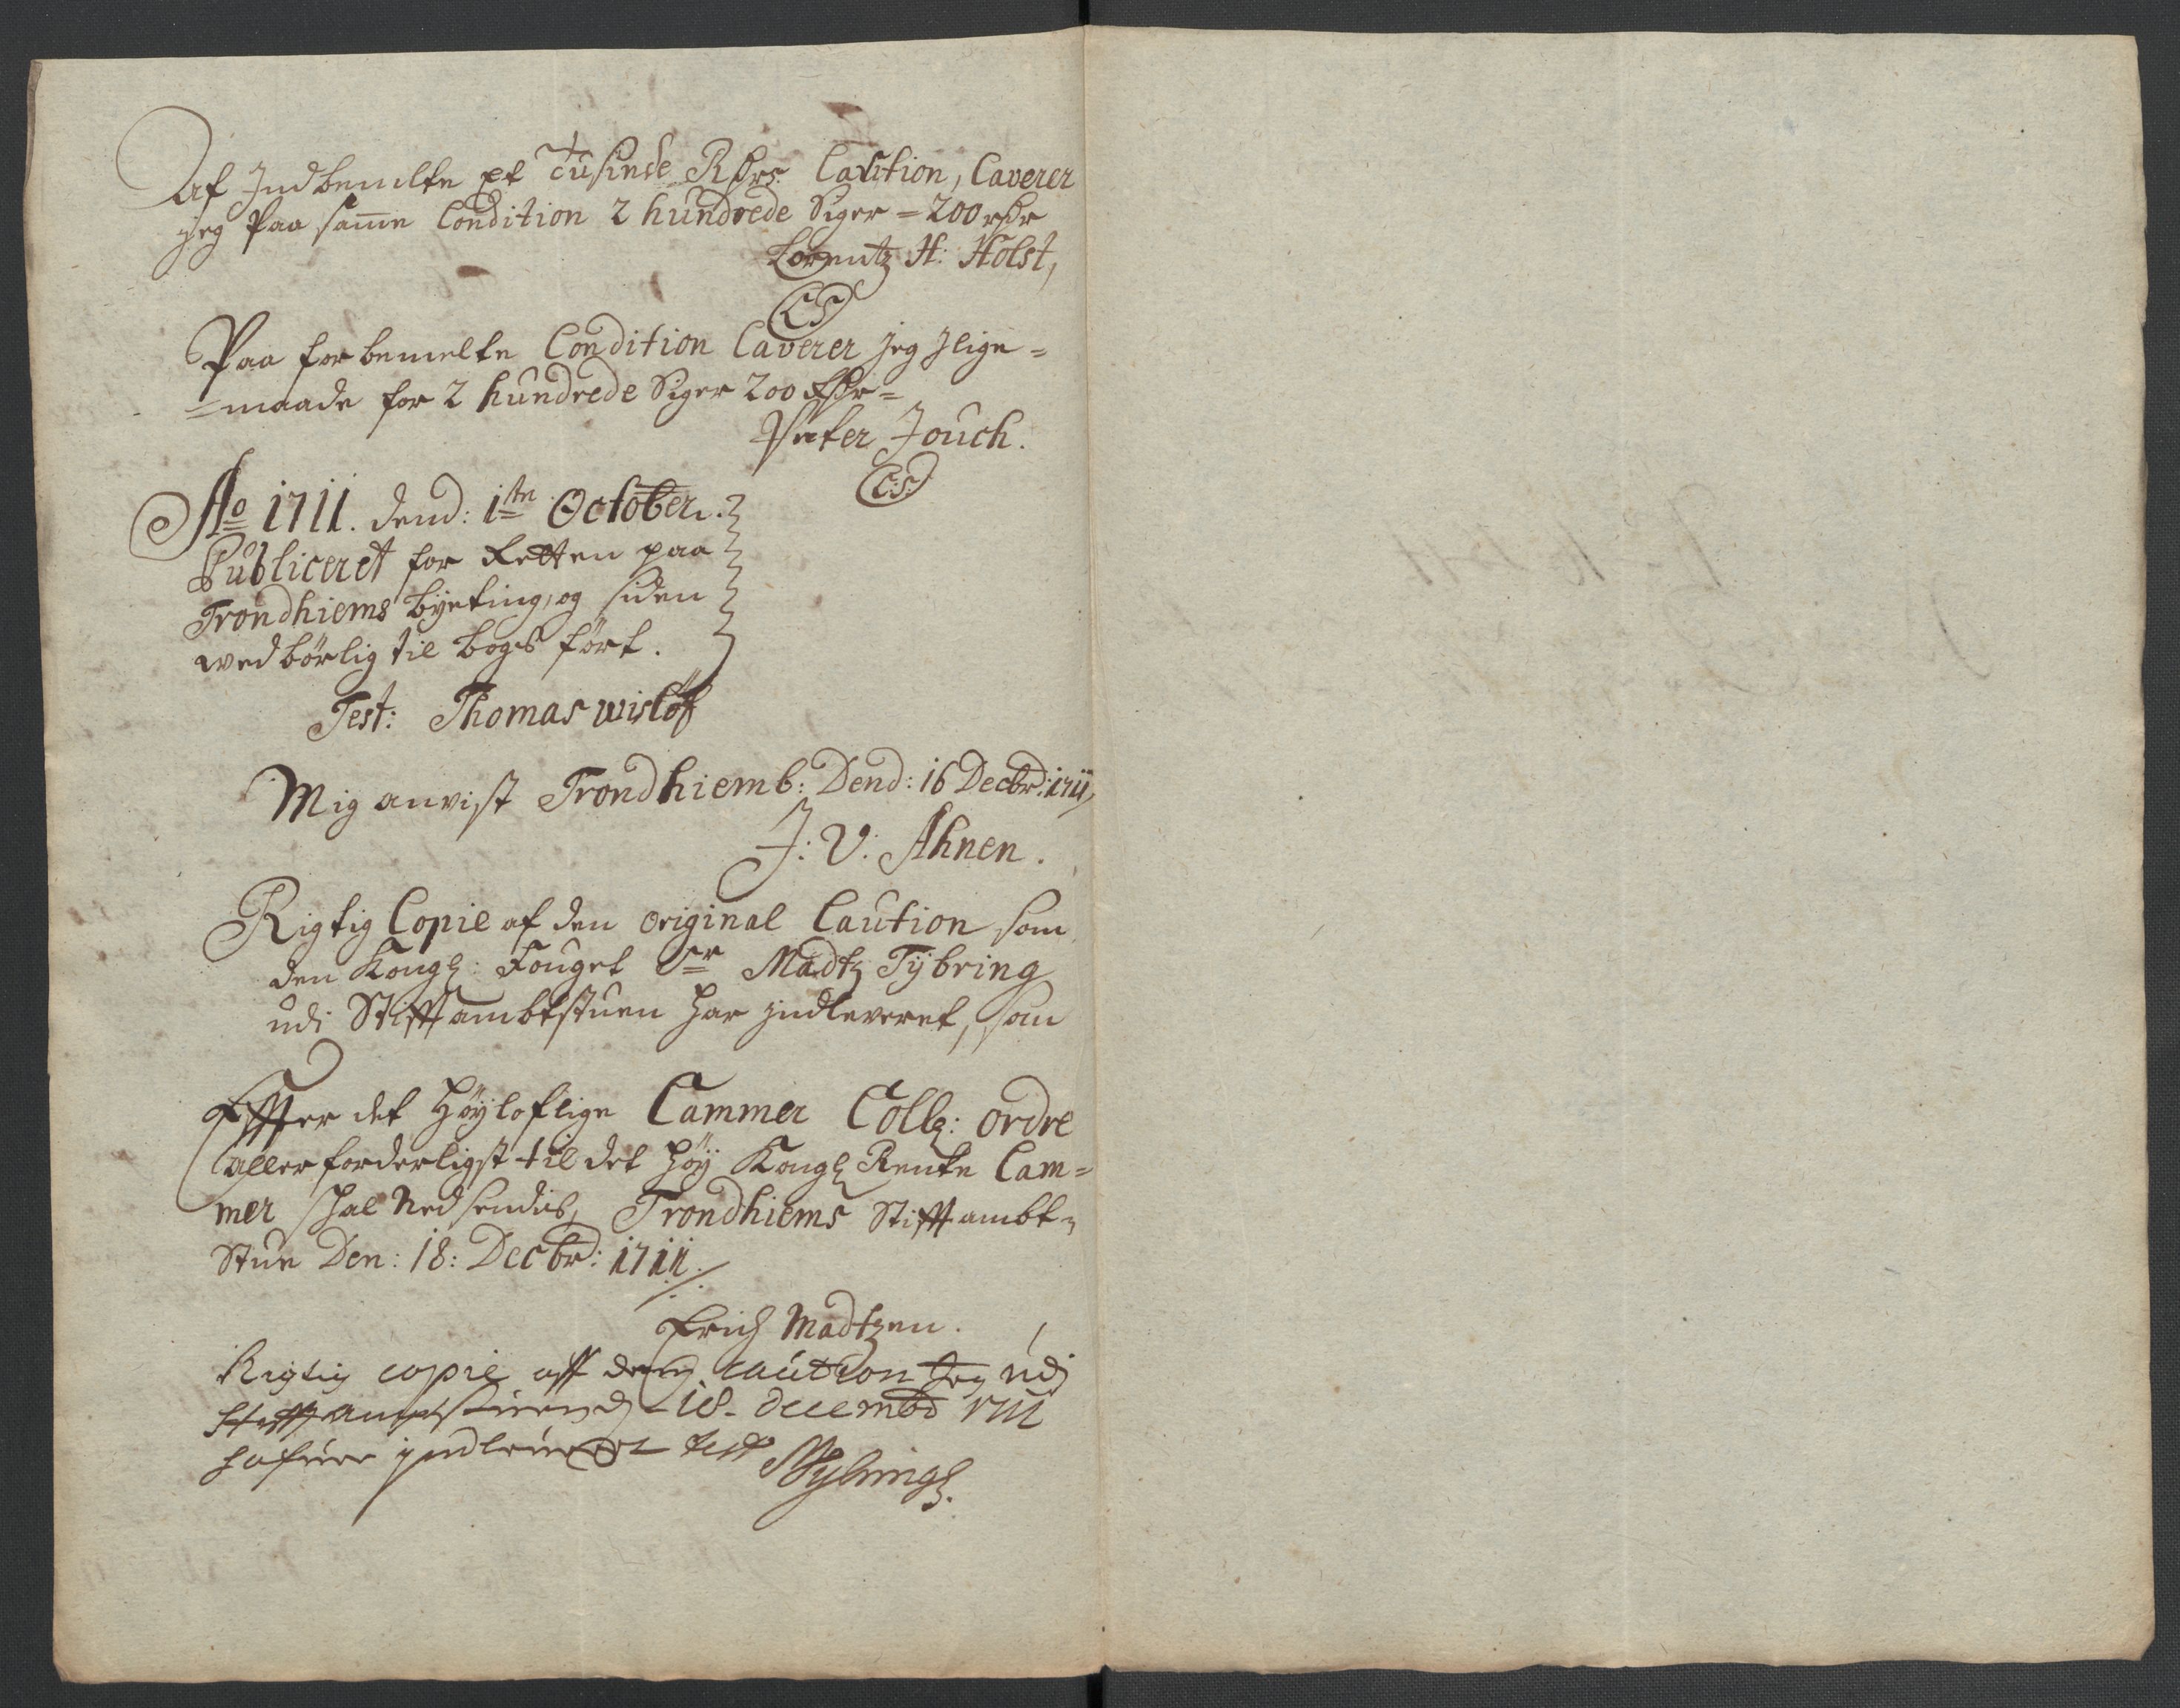 Af Indbemelte et Tusinde Rdrs Caution, Caverer
jeg Paa samme Condition 2 hundrede Siger = 200 rdr
Lorentz H: Holst,
(LS)
Paa forbemelte Condition Caverer jeg jlige=
=maade for 2 hundrede Siger 200 Rdr=
Peter Jouch.
(L:S:)
Ao 1711. dend: 1te October.
Publiceret for Retten paa
Trondhiems byeting, og siden
wedbørlig til bogs ført.
Test: Thomas wisløff
Mig anvist Trondhiemb: Dend: 16 Decbr: 1711,
J: V: Ahnen.
Rigtig Copie af den original Caution som
den Kongl: Fouget Sr Madtz Tÿbring
udi Stifftambtstuen har indleveret, som
Effter det Høÿloflige Cammer Coll: ordre
allerforderligst til det høÿ Kongl Rente Cam=
mer skal Nedsendis, Trondhiems Stifftambt=
Stue Den: 18: Decbr: 1711./.
Erich Madtzen.
Rigtig copie aff den caution Jeg udj
Stifftamptstuen d 18 decembr 1711
hafuer jndleueret test
MTybringh.